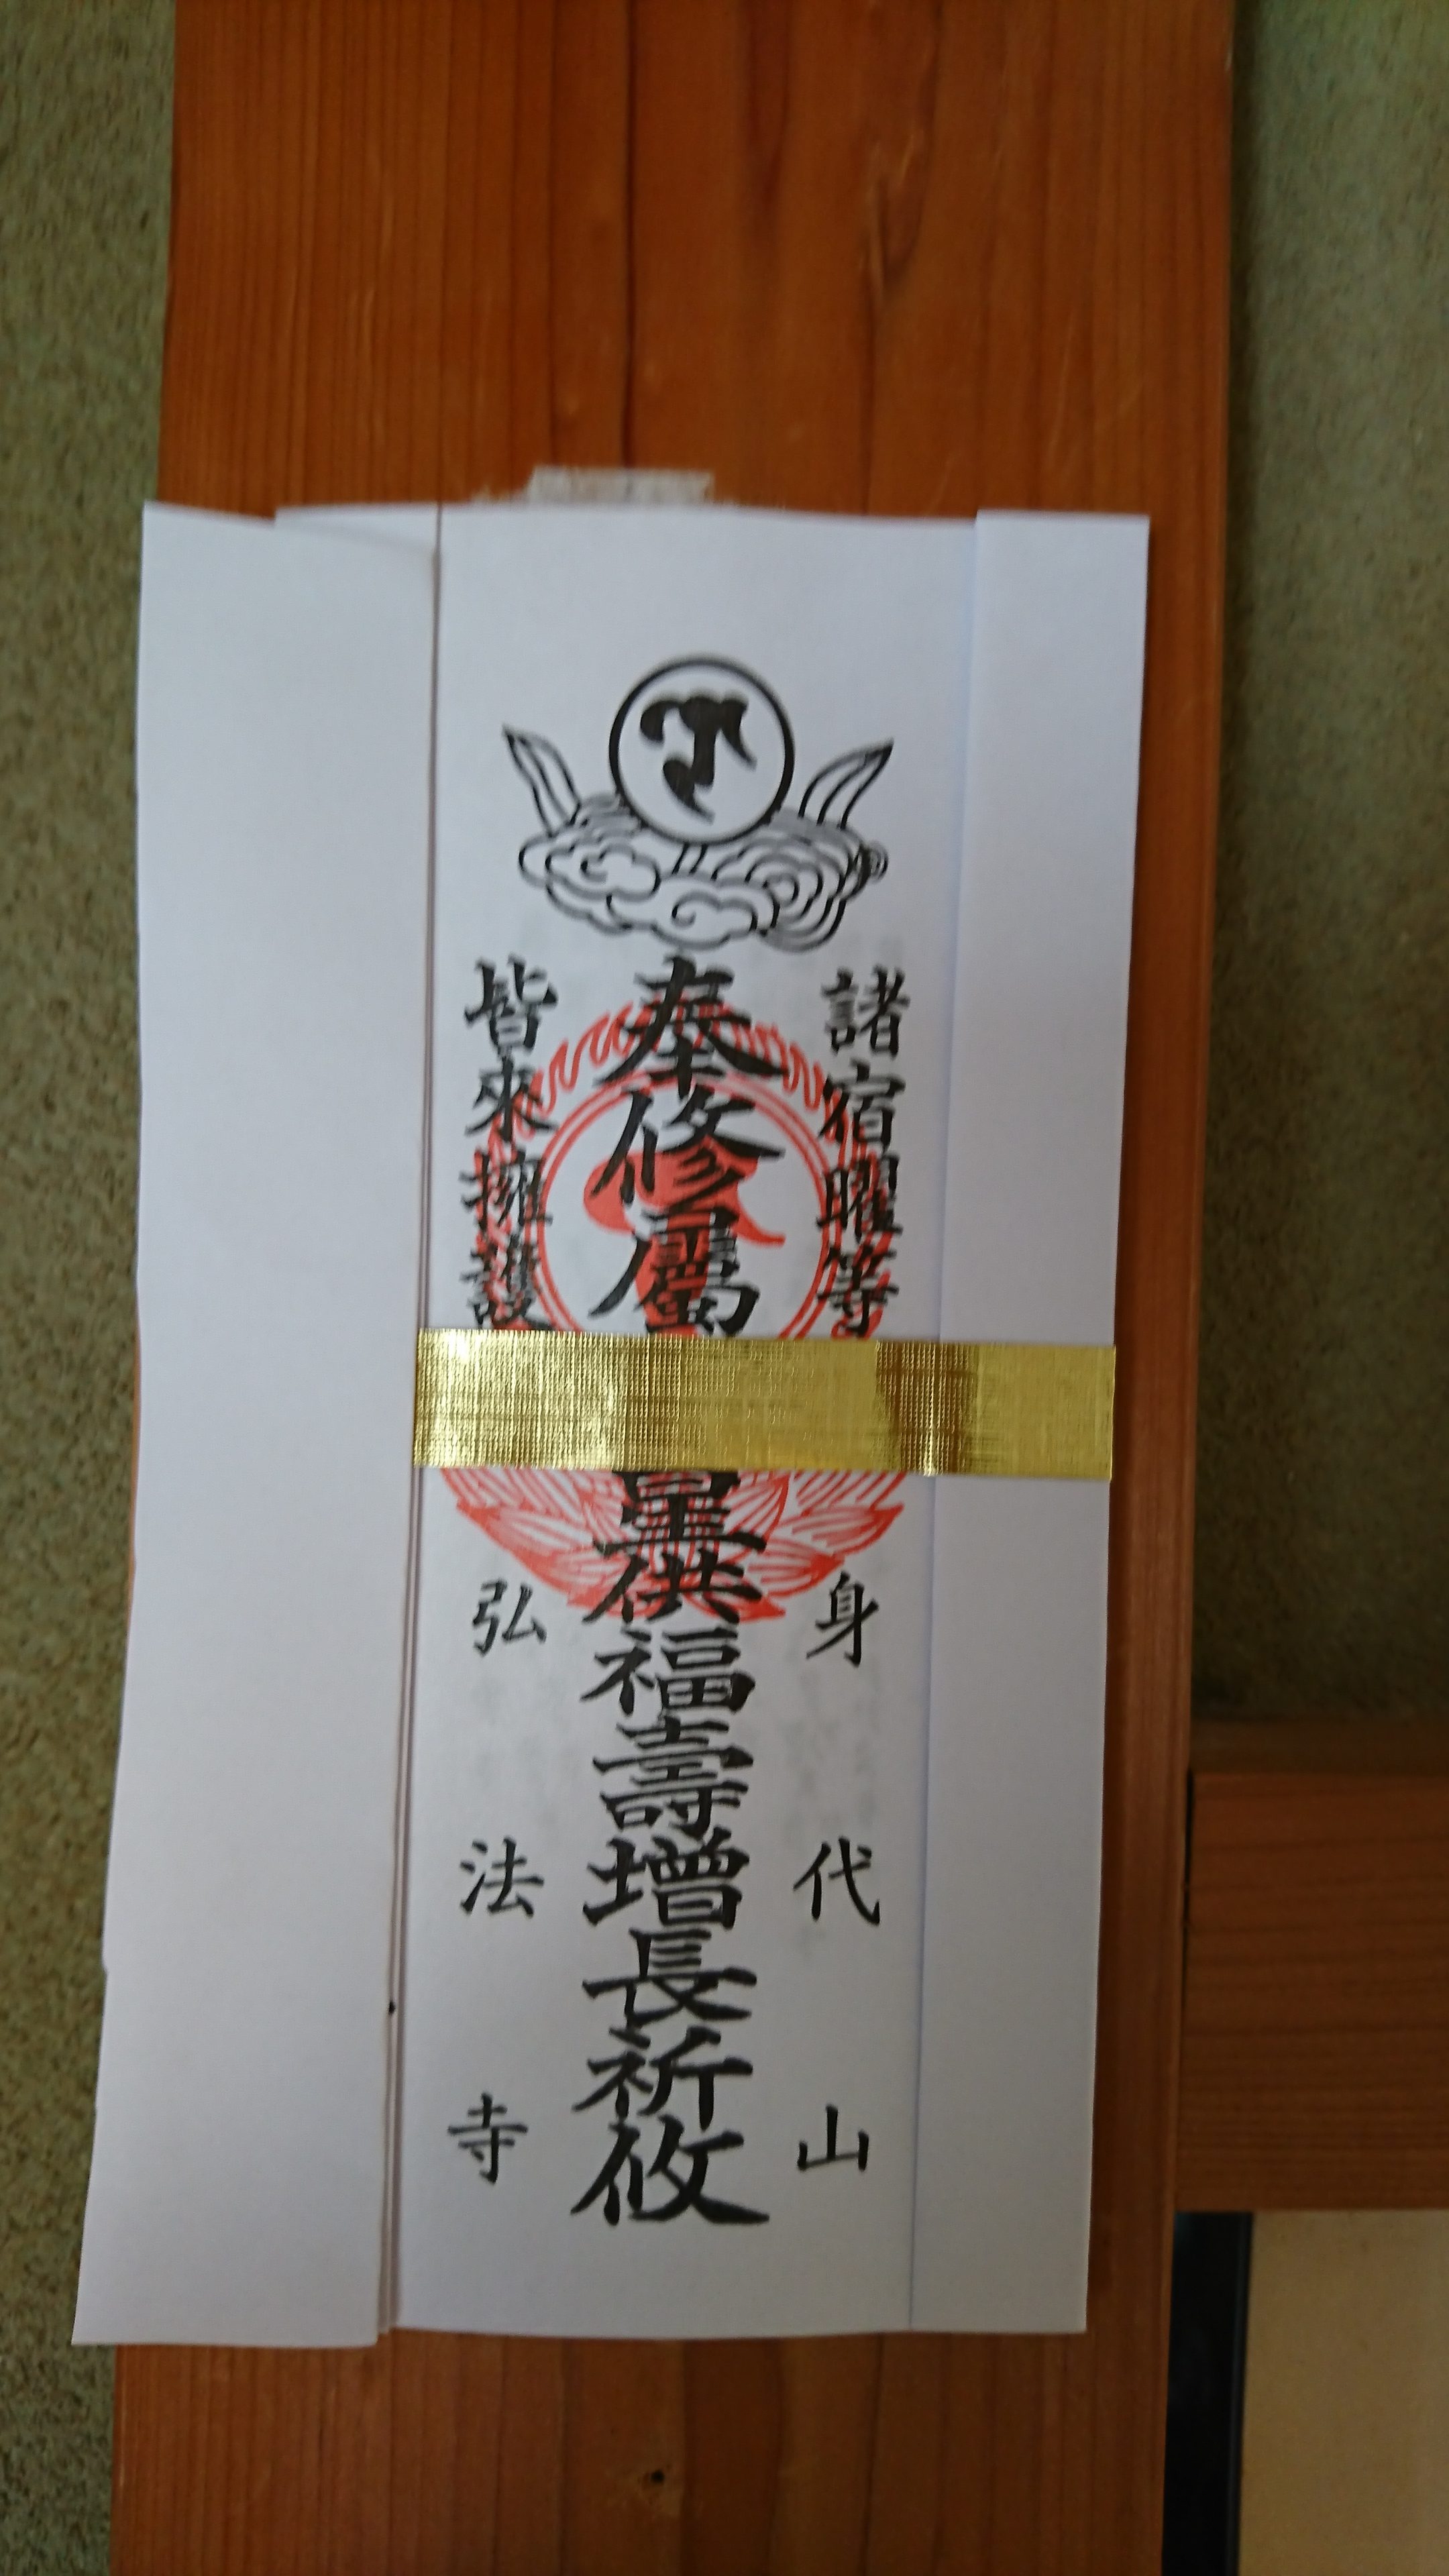 諸宿曜等
奉修屬星供福壽增長祈攸
皆來擁護
身代山
弘法寺